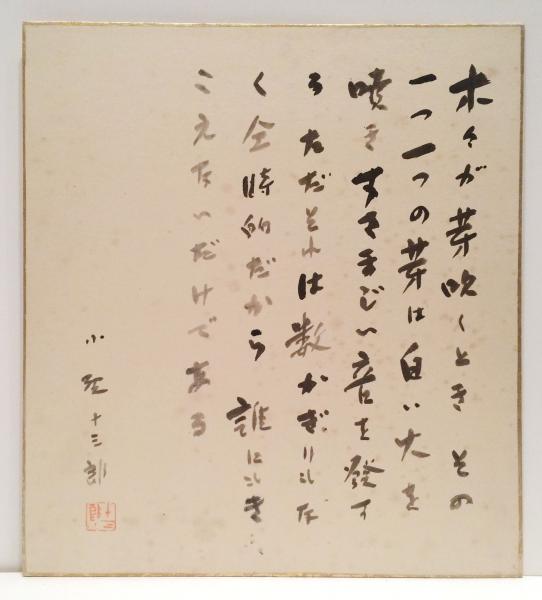 木々が芽吹くとき その
一つ一つの芽は白い火を
噴き すさまじい音を發す
る ただそれは数かぎりもな
く仝時的だから 誰にもき
こえないだけである
小野十三郎